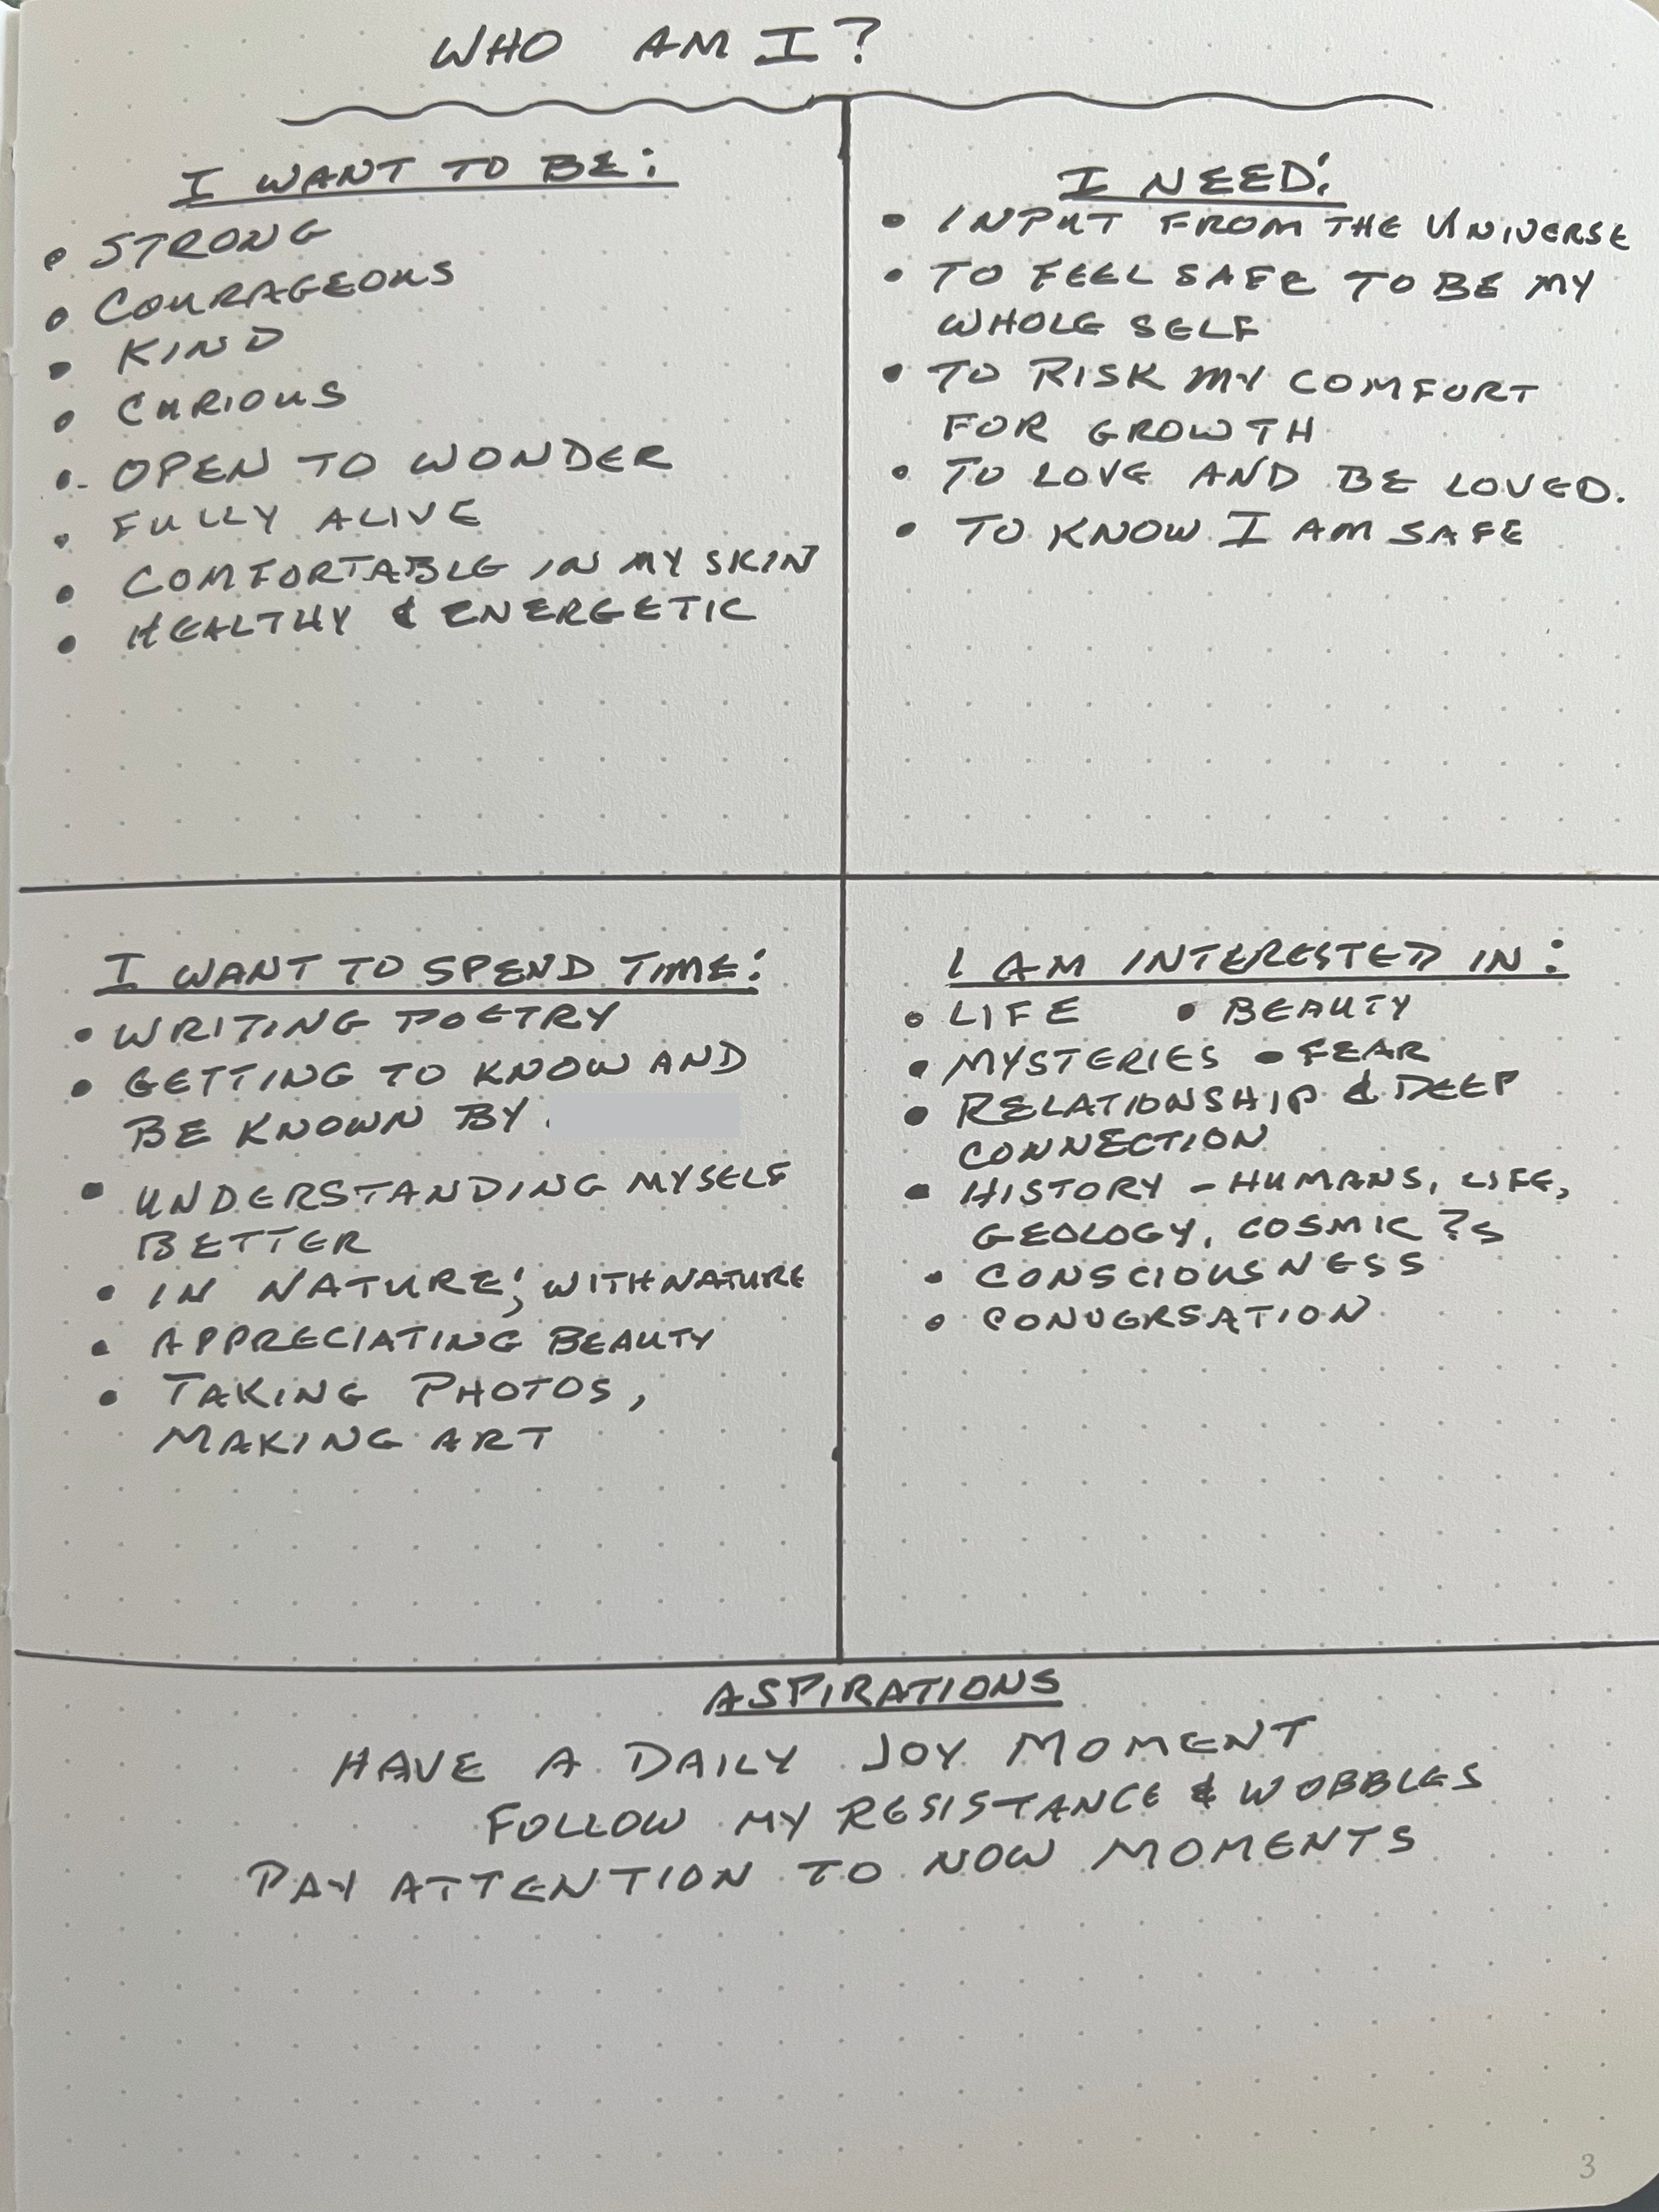 WHO AM I?
I WANT TO BE:
• STRONG
• COURAGEOUS
• KIND
• CURIOUS
• OPEN TO WONDER
• FULLY ALIVE
• COMFORTABLE IN MY SKIN
• HEALTHY & ENERGETIC
I NEED:
• INPUT FROM THE UNIVERSE
• TO FEEL SAFE TO BE MY
WHOLE SELF
• TO RISK MY COMFORT
FOR GROWTH
• TO LOVE AND BE LOVED.
• TO KNOW I AM SAFE
I WANT TO SPEND TIME:
• WRITING POETRY
• GETTING TO KNOW AND
BE KNOWN BY
• UNDERSTANDING MYSELF
BETTER
• IN NATURE; WITH NATURE
• APPRECIATING BEAUTY
• TAKING PHOTOS,
MAKING ART
I AM INTERESTED IN:
• LIFE • BEAUTY
• MYSTERIES • FEAR
• RELATIONSHIP & DEEP
CONNECTION
• HISTORY - HUMANS, LIFE,
GEOLOGY, COSMIC ?s
• CONSCIOUSNESS
• CONVERSATION
ASPIRATIONS
HAVE A DAILY JOY MOMENT
FOLLOW MY RESISTANCE & WOBBLES
PAY ATTENTION TO NOW MOMENTS
3